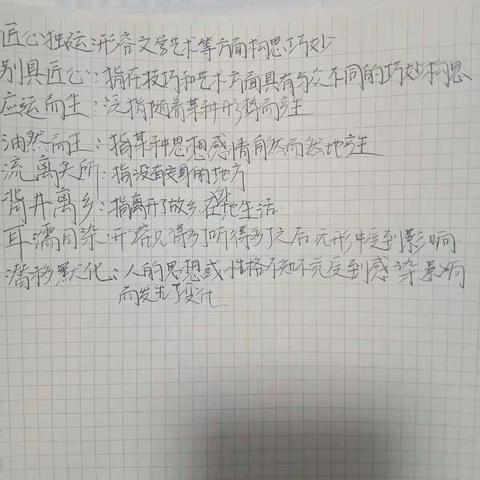 匠心独运:形容文学艺术等方面构思巧妙
别具匠心:指在技巧和艺术方面具有与众不同的巧妙构思
应运而生:泛指随着某种形势而产生
油然而生:指某种思想感情自然而然地产生
流离失所:指没有安身的地方
背井离乡:指离开了故乡在外地生活
耳濡目染:形容见得多了听得多了之后无形中受到影响
潜移默化:人的思想或性格不知不觉受到感染影响
而发生了变化